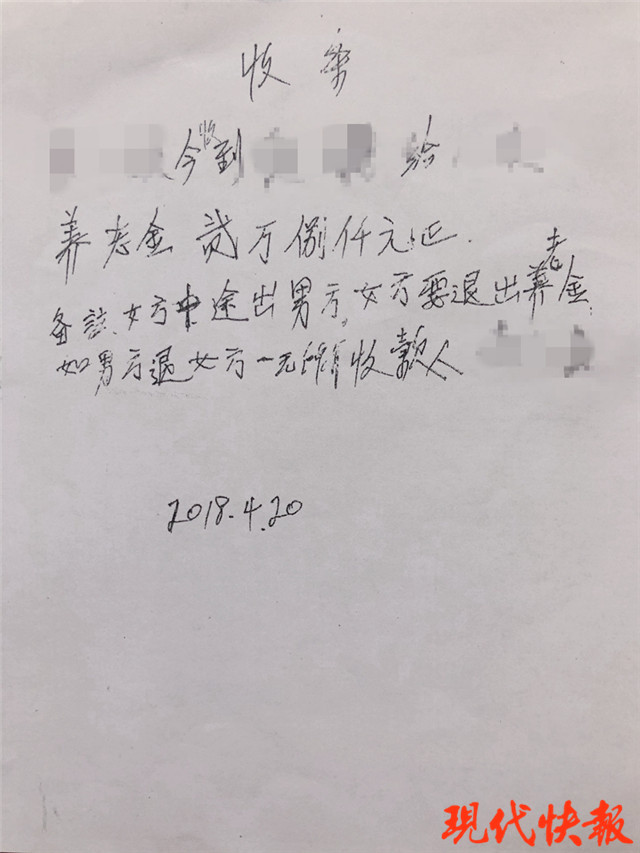 收条
今收到 给
养老金 贰万捌仟元正.
备註、女方中途出男方,女方要退出养老金.
如男方退女方一元 收款人
2018.4.20
現代快報